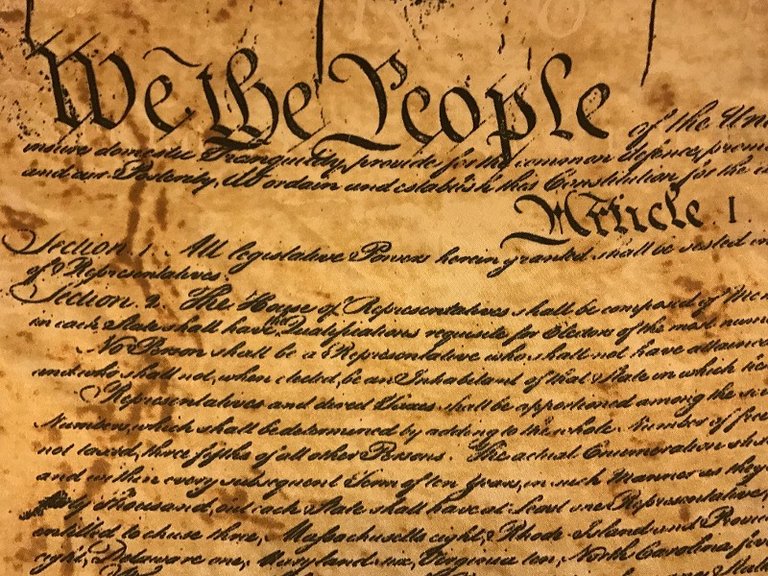 We the People
of the Uni
insure domestic Tranquility, provide for the common defence, promo
and our Posterity, do ordain and establish this Constitution for the
Article I
Section 1. All legislative Powers herein granted shall be vested
of Representatives.
Section. 2. The House of Representatives shall be composed of
in each State shall have the Qualifications requisite for Electors of the most nume
No Person shall be a Representative who shall not have attained
and who shall not, when elected, be an Inhabitant of that State in which
Representatives and direct Taxes shall be apportioned among the
Numbers, which shall be determined by adding to the whole Number of free
not taxed, three fifths of all other Persons. The actual Enumeration sh
and within every subsequent Term of ten Years, in such Manner as they
Thousand, but each State shall have at Least one Representative;
entitled to chuse three, Massachusetts eight, Rhode Island and Provi
eight, Delaware one, Maryland six, Virginia ten, North Carolina five